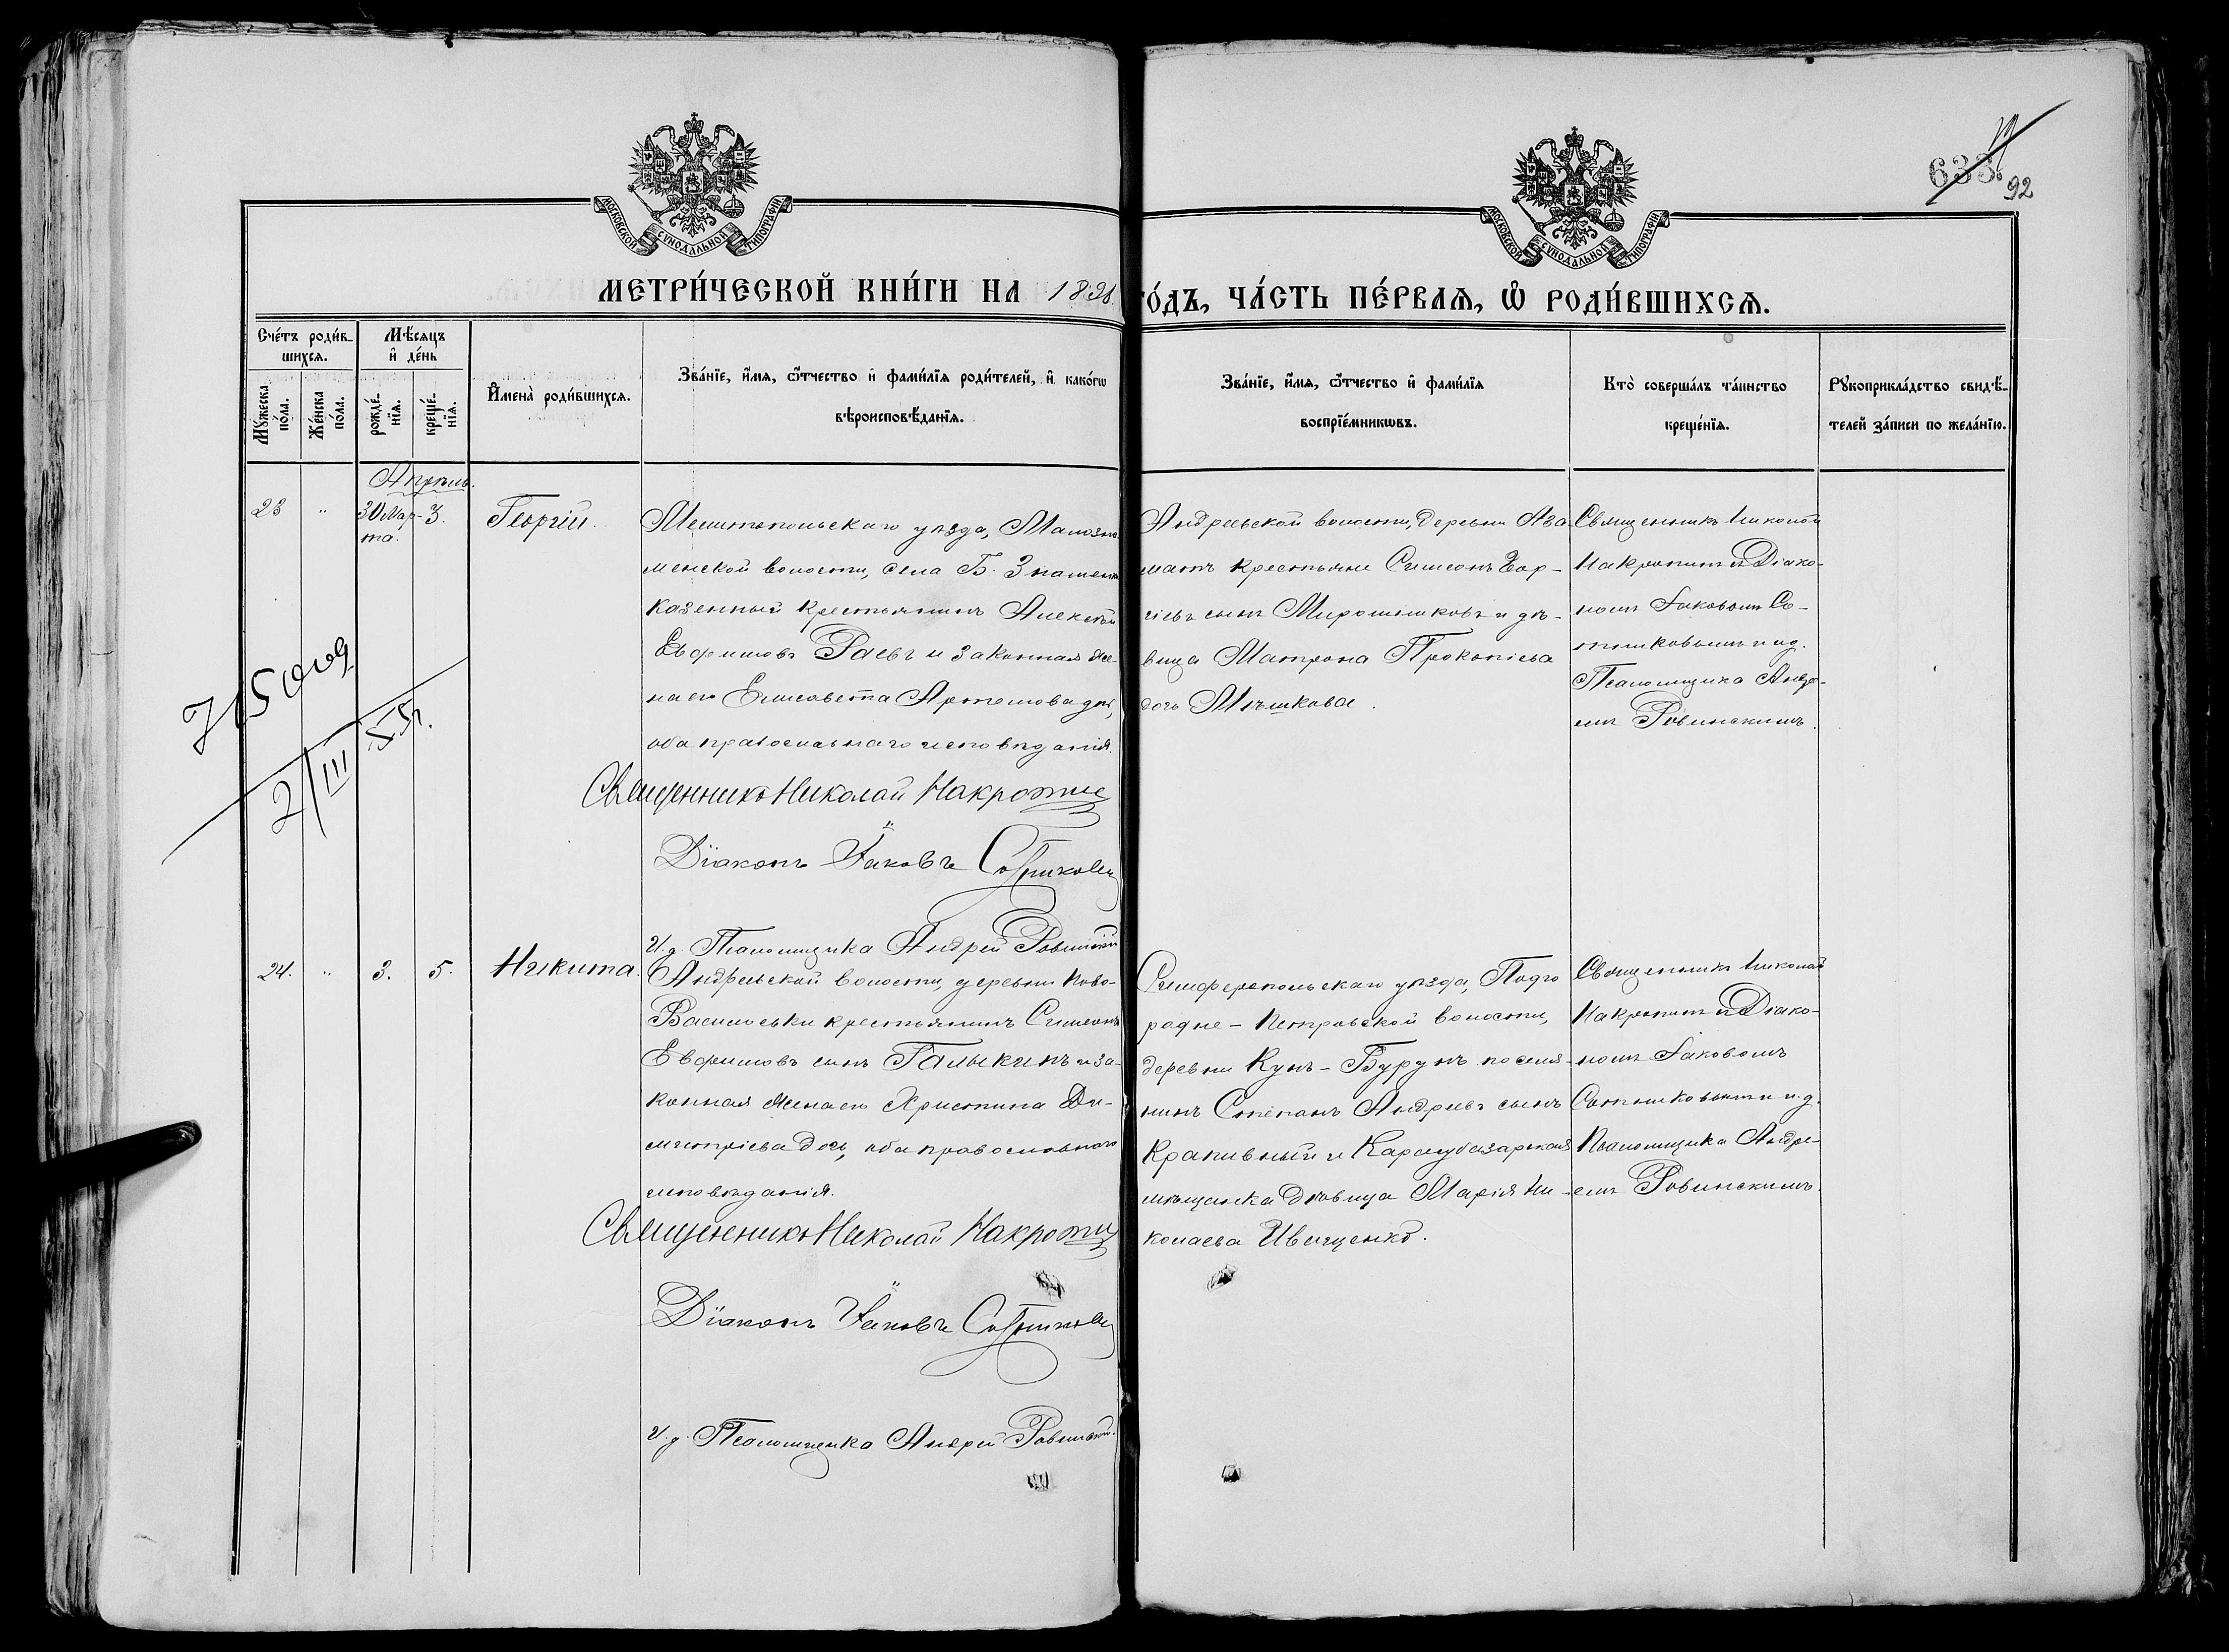 633
92
МОСКОВСКОЙ СѴНОДАЛЬНОЙ ТИПОГРАФІИ
МОСКОВСКОЙ СѴНОДАЛЬНОЙ ТИПОГРАФІИ
МЕТРИ́ЧЕСКОЙ КНИ́ГИ НА 1898
ГО́ДЪ, ЧА́СТЬ ПЕ́РВАѦ, Ѽ РОДИ́ВШИХСѦ.
Сче́тъ роди́в-
шихсѧ.
Мѣ́сѧцъ
и҆ де́нь
Мꙋ́жеска
по́ла.
Же́нска
по́ла.
рожде́-
нїѧ.
креще́-
нїѧ.
И҆мена̀ роди́вшихсѧ.
Зва́нїе, и҆́мѧ, ѻ҆́тчество и҆ фами́лїѧ роди́телей, и҆ како́гѡ
вѣроисповѣ́данїѧ.
Зва́нїе, и҆́мѧ, ѻ҆́тчество и҆ фами́лїѧ
воспрїе́мникѡвъ.
Кто̀ соверша́лъ та́инство
креще́нїѧ.
Рꙋкоприкла́дство свидѣ́-
телей за́писи по жела́нїю.
Апрѣль.
23 " 30 Мар- 3. Георгій.
та.
Мелитопольскаго уѣзда, Малозна
менской волости, села Б. Знаменки
казенный крестьянинъ Алексѣй
Евфимовъ Раевъ и законная же-
на его Елисавета Артемова дочь,
оба православнаго исповѣданія.
Священникъ Николай Макротис
Діаконъ Іаковъ Сотниковъ
И. д. Псаломщика Андрей Ровинскій
Андреевской волости, деревни Аза
матъ крестьяне Симеонъ Геор-
гіевъ сынъ Мирошниковъ и дѣ-
вица Матрона Прокопіева
дочь Мѣшкова.
Священникъ Николай
Макротис и Діако-
номъ Іаковомъ Со-
тниковымъ и и. д.
Псаломщика Андре-
емъ Ровинскимъ.
2/III 55г.
24. " 3. 5. Никита.
Андреевской волости, деревни Ново-
Васильевки крестьянинъ Симеонъ
Евфимовъ сынъ Галыкинъ и за-
конная жена его Христина Ди-
митріева дочь, оба православнаго
исповѣданія.
Священникъ Николай Макротис
Діаконъ Іаковъ Сотниковъ
И. д. Псаломщика Андрей Ровинскій.
Симферопольскаго уѣзда, Подго
родне-Петровской волости,
деревни Кунъ-Бурунъ поселя-
нинъ Степанъ Андреевъ сынъ
Крапивный и Карасубазарская
мѣщанка дѣвица Марія Ни-
колаева Иванченко.
Священникъ Николай
Макротис и Діако-
номъ Іаковомъ
Сотниковымъ и и. д.
Псаломщика Андре-
емъ Ровинскимъ.